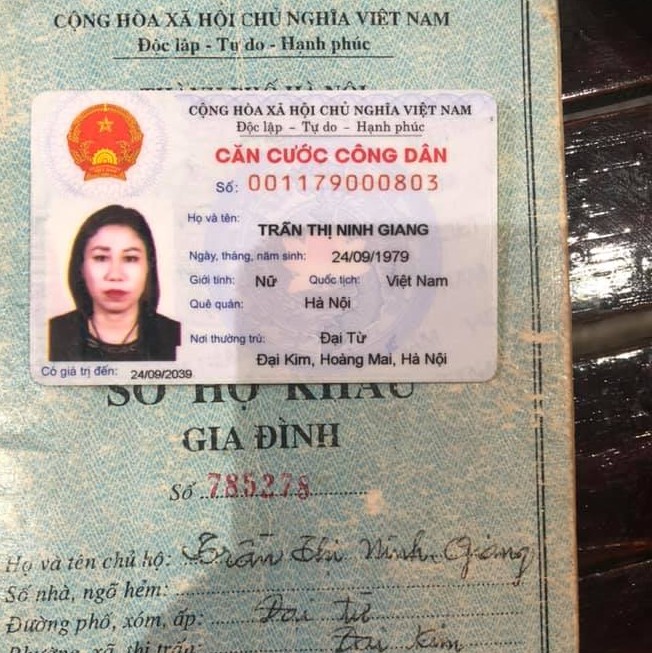 CỘNG HÒA XÃ HỘI CHỦ NGHĨA VIỆT NAM
Độc lập - Tự do - Hạnh phúc
THÀNH PHỐ HÀ NỘI
CỘNG HÒA XÃ HỘI CHỦ NGHĨA VIỆT NAM
Độc lập - Tự do - Hạnh phúc
CĂN CƯỚC CÔNG DÂN
Số: 001179000803
Họ và tên:
TRẦN THỊ NINH GIANG
Ngày, tháng, năm sinh: 24/09/1979
Giới tính: Nữ Quốc tịch: Việt Nam
Quê quán: Hà Nội
Nơi thường trú: Đại Từ
Đại Kim, Hoàng Mai, Hà Nội
Có giá trị đến: 24/09/2039
SỔ HỘ KHẨU
GIA ĐÌNH
Số 785278
Họ và tên chủ hộ: Trần Thị Ninh Giang
Số nhà, ngõ hẻm:
Đường phố, xóm, ấp: Đại từ
Phường, xã, thị trấn: Đại Kim